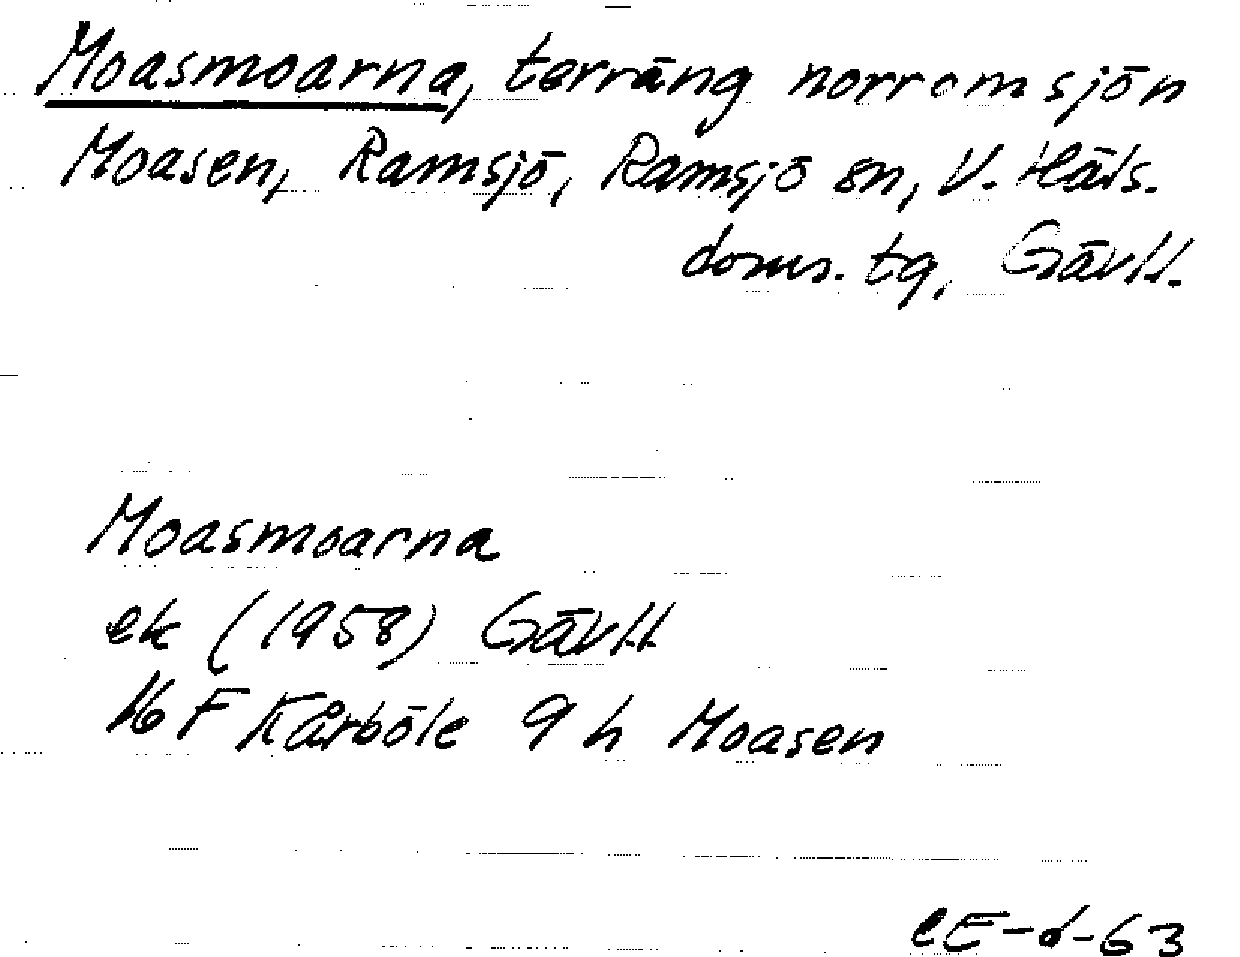 Moasmoarna, terräng norr om sjön
Moasen, Ramsjö, Ramsjö sn, V. Häls.
doms. tg, Gävl.l.
Moasmoarna
ek (1958) Gävl.l
16 F Kårböle 9 h Moasen
CE-d-63